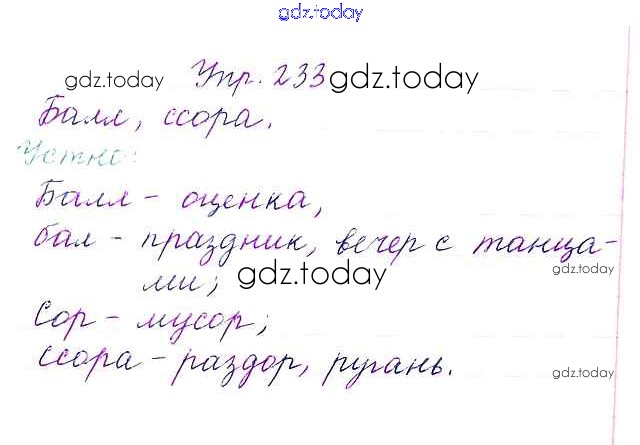 gdz.today
gdz.today Упр. 233 gdz.today
Балл, ссора.
Устно:
Балл - оценка,
бал - праздник, вечер с танца-
gdz.today
ми; gdz.today
Сор - мусор;
ссора - раздор, ругань.
gdz.today